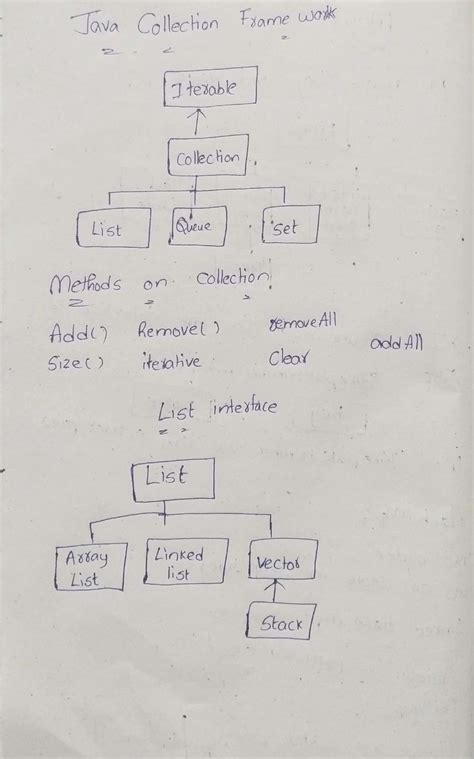 Java Collection Frame work
Iterable
Collection
List Queue Set
Methods on Collection
Add() Remove() removeAll addAll
Size() iterative Clear
List interface
List
Array List
Linked list
Vector
Stack